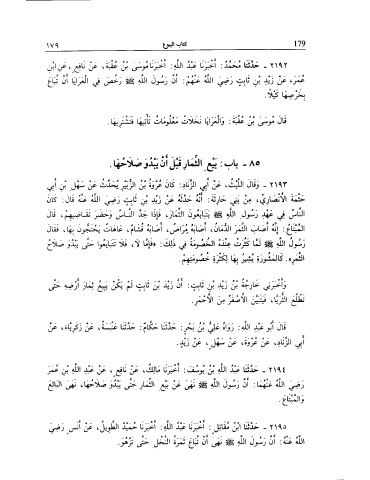 179
كتاب البيوع
١٧٩
٢١٩٢ - حَدَّثَنَا مُحَمَّدٌ: أَخْبَرَنَا عَبْدُ اللَّهِ: أَخْبَرَنَا مُوسَى بْنُ عُقْبَةَ، عَنْ نَافِعٍ، عَنِ ابْنِ
عُمَرَ، عَنْ زَيْدِ بْنِ ثَابِتٍ رَضِيَ اللَّهُ عَنْهُمْ: أَنَّ رَسُولَ اللَّهِ ﷺ رَخَّصَ فِي الْعَرَايَا أَنْ تُبَاعَ
بِخَرْصِهَا كَيْلًا.
قَالَ مُوسَى بْنُ عُقْبَةَ: وَالْعَرَايَا نَخَلَاتٌ مَعْلُومَاتٌ تَأْتِيهَا فَتَشْتَرِيهَا.
٨٥ - باب: بَيْعِ الثِّمَارِ قَبْلَ أَنْ يَبْدُوَ صَلَاحُهَا.
٢١٩٣ - وَقَالَ اللَّيْثُ، عَنْ أَبِي الزِّنَادِ: كَانَ عُرْوَةُ بْنُ الزُّبَيْرِ يُحَدِّثُ عَنْ سَهْلِ بْنِ أَبِي
حَثْمَةَ الْأَنْصَارِيِّ، مِنْ بَنِي حَارِثَةَ: أَنَّهُ حَدَّثَهُ عَنْ زَيْدِ بْنِ ثَابِتٍ رَضِيَ اللَّهُ عَنْهُ قَالَ: كَانَ
النَّاسُ فِي عَهْدِ رَسُولِ اللَّهِ ﷺ يَتَبَايَعُونَ الثِّمَارَ، فَإِذَا جَدَّ النَّاسُ وَحَضَرَ تَقَاضِيهِمْ، قَالَ
الْمُبْتَاعُ: إِنَّهُ أَصَابَ الثَّمَرَ الدُّمَانُ، أَصَابَهُ مُرَاضٌ، أَصَابَهُ قُشَامٌ، عَاهَاتٌ يَحْتَجُّونَ بِهَا، فَقَالَ
رَسُولُ اللَّهِ ﷺ لَمَّا كَثُرَتْ عِنْدَهُ الْخُصُومَةُ فِي ذَلِكَ: «فَإِمَّا لَا، فَلَا تَتَبَايَعُوا حَتَّى يَبْدُوَ صَلَاحُ
الثَّمَرِ». كَالْمَشُورَةِ يُشِيرُ بِهَا لِكَثْرَةِ خُصُومَتِهِمْ.
وَأَخْبَرَنِي خَارِجَةُ بْنُ زَيْدِ بْنِ ثَابِتٍ: أَنَّ زَيْدَ بْنَ ثَابِتٍ لَمْ يَكُنْ يَبِيعُ ثِمَارَ أَرْضِهِ حَتَّى
تَطْلُعَ الثُّرَيَّا، فَيَتَبَيَّنَ الْأَصْفَرُ مِنَ الْأَحْمَرِ.
قَالَ أَبُو عَبْدِ اللَّهِ: رَوَاهُ عَلِيُّ بْنُ بَحْرٍ: حَدَّثَنَا حَكَّامٌ: حَدَّثَنَا عَنْبَسَةُ، عَنْ زَكَرِيَّاءَ، عَنْ
أَبِي الزِّنَادِ، عَنْ عُرْوَةَ، عَنْ سَهْلٍ، عَنْ زَيْدٍ.
٢١٩٤ - حَدَّثَنَا عَبْدُ اللَّهِ بْنُ يُوسُفَ: أَخْبَرَنَا مَالِكٌ، عَنْ نَافِعٍ، عَنْ عَبْدِ اللَّهِ بْنِ عُمَرَ
رَضِيَ اللَّهُ عَنْهُمَا: أَنَّ رَسُولَ اللَّهِ ﷺ نَهَى عَنْ بَيْعِ الثِّمَارِ حَتَّى يَبْدُوَ صَلَاحُهَا، نَهَى الْبَائِعَ
وَالْمُبْتَاعَ.
٢١٩٥ - حَدَّثَنَا ابْنُ مُقَاتِلٍ: أَخْبَرَنَا عَبْدُ اللَّهِ: أَخْبَرَنَا حُمَيْدٌ الطَّوِيلُ، عَنْ أَنَسٍ رَضِيَ
اللَّهُ عَنْهُ: أَنَّ رَسُولَ اللَّهِ ﷺ نَهَى أَنْ تُبَاعَ ثَمَرَةُ النَّخْلِ حَتَّى تَزْهُوَ.